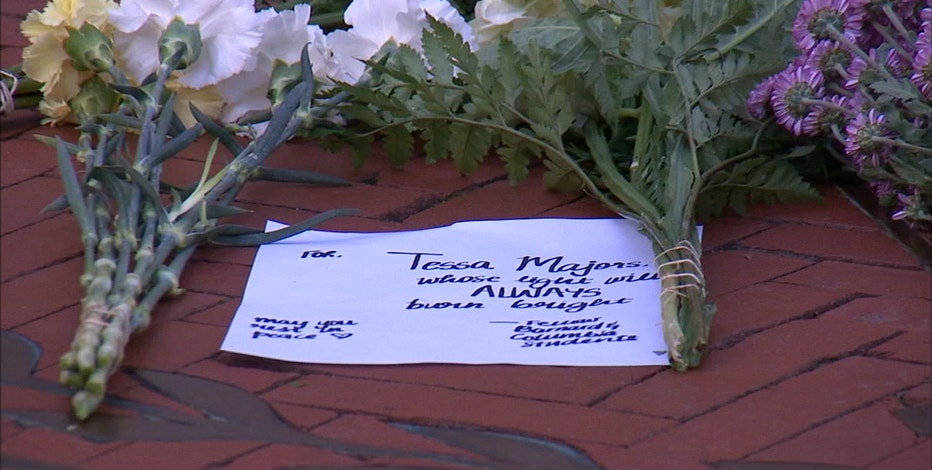 For.
Tessa Majors.
whose light will
ALWAYS
burn bright
may you
rest in
peace ♡
— Fellow
Barnard &
Columbia
Students